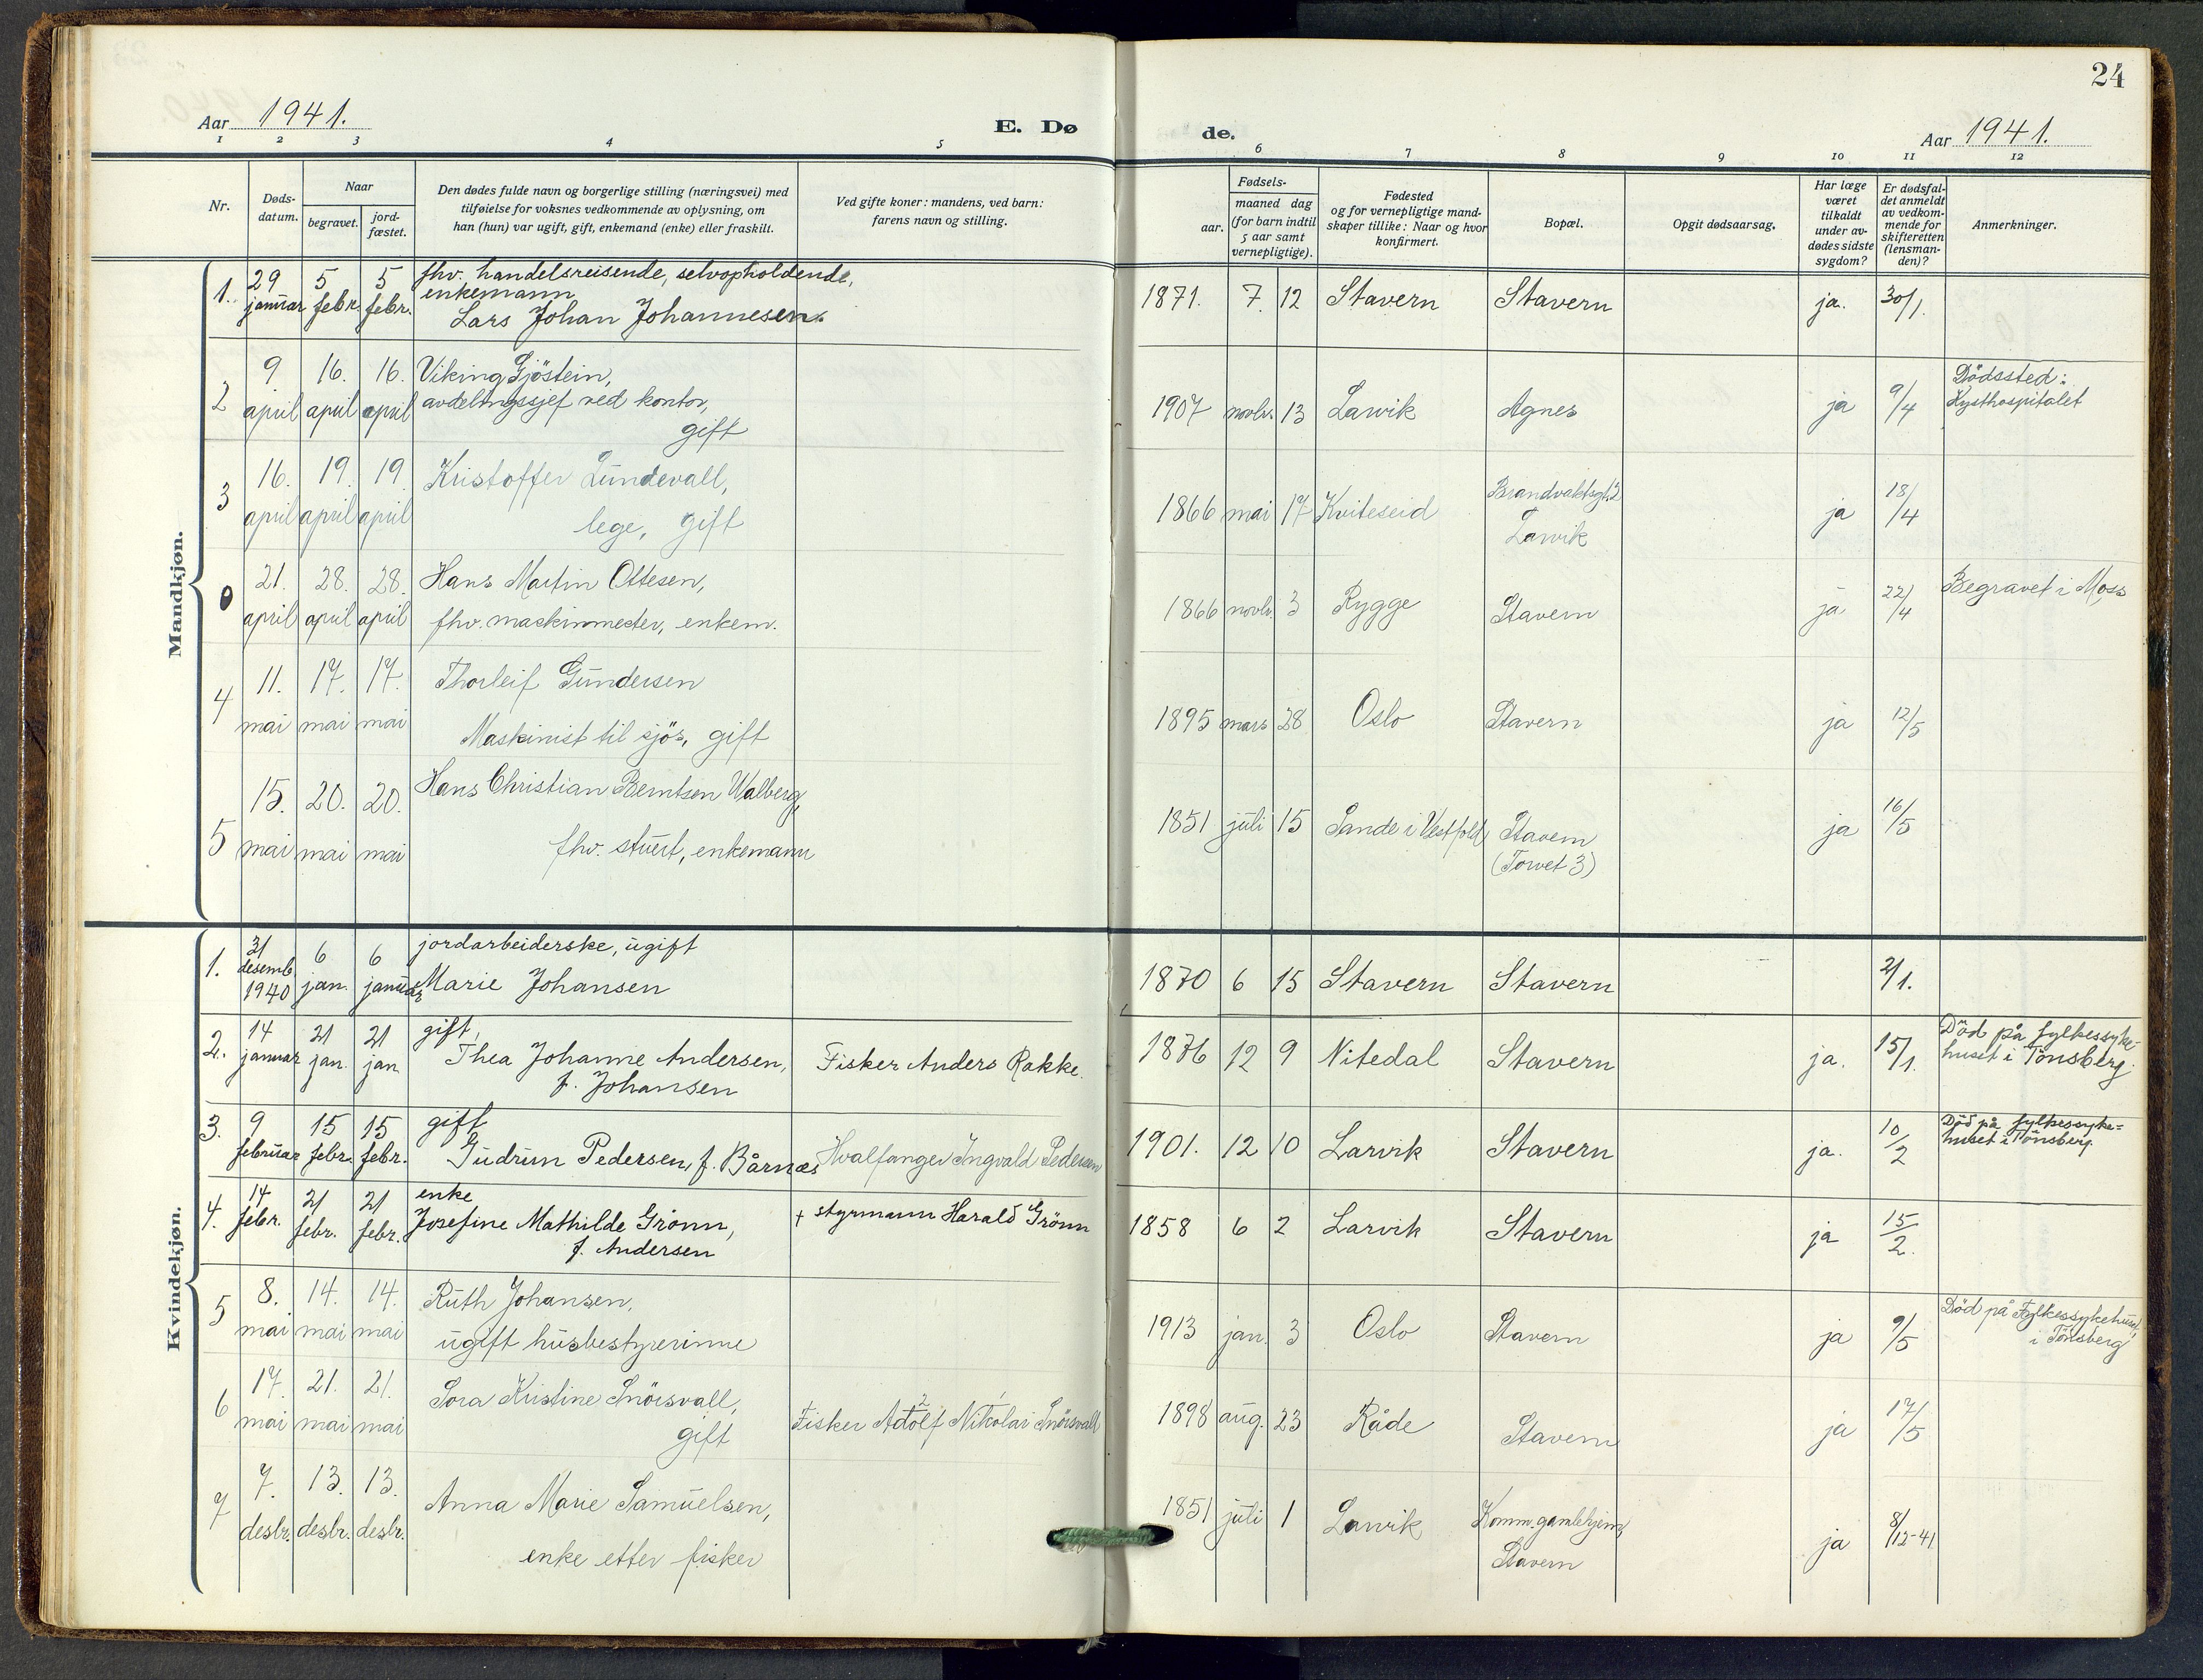 24
Aar 1941. E. Dø de. Aar 1941.
1 2 3 4 5 6 7 8 9 10 11 12
Nr.
Døds-
datum.
Naar
begravet.
jord-
fæstet.
Den dødes fulde navn og borgerlige stilling (næringsvei) med
tilføielse for voksnes vedkommende av oplysning, om
han (hun) var ugift, gift, enkemand (enke) eller fraskilt.
Ved gifte koner: mandens, ved barn:
farens navn og stilling.
Fødsels-
aar.
maaned dag
(for barn indtil
5 aar samt
vernepligtige).
Fødested
og for vernepligtige mand-
skaper tillike: Naar og hvor
konfirmert.
Bopæl.
Opgit dødsaarsag.
Har læge
været
tilkaldt
under av-
dødes sidste
sygdom?
Er dødsfal-
det anmeldt
av vedkom-
mende for
skifteretten
(lensman-
den)?
Anmerkninger.
Mandkjøn.
1. 29 januar 5 febr. 5 febr. fhv. handelsreisende, selvopholdende,
enkemann
Lars Johan Johannesen. 1871. 7. 12 Stavern Stavern ja. 30/1.
2 9 april 16. april 16. april Viking Gjöstein,
avdelingssjef ved kontor,
gift 1907 novbr. 13 Larvik Agnes ja 9/4 Dödssted:
Kysthospitalet
3 16. april 19 april 19 april Kristoffer Lundevall,
lege, gift 1866 mai 17 Kviteseid Brandvaktsgt. 2
Larvik ja 18/4
0 21. april 28. april 28. april Hans Martin Ottesen,
fhv. maskinmester, enkem. 1866 novbr. 3 Rygge Stavern ja 22/4 Begravet i Moss
4 11. mai 17. mai 17. mai Thorleif Gundersen
Maskinist til sjös, gift 1895 mars 28 Oslo Stavern ja 12/5
5 15. mai 20. mai 20. mai Hans Christian Berntsen Walberg,
fhv. stuert, enkemann 1851 juli 15 Sande i Vestfold Stavern
(Torvet 3) ja 16/5
Kvindekjøn.
1. 31 desemb. 1940 6 jan. 6 januar jordarbeiderske, ugift
Marie Johansen 1870 6 15 Stavern Stavern 2/1.
2. 14 januar 21 jan. 21 jan gift,
Thea Johanne Andersen,
f. Johansen Fisker Anders Rakke. 1876 12 9 Nitedal Stavern ja. 15/1. Död på fylkessyke-
huset i Tönsberg.
3. 9 februar 15 febr. 15 febr. gift
Gudrun Pedersen, f. Bårnes Hvalfanger Ingvald Pedersen 1901. 12 10 Larvik Stavern ja. 10/2 Död på fylkessyke=
huset i Tönsberg.
4. 14 febr. 21 febr. 21 febr. enke
Josefine Mathilde Grönn,
f. Andersen + styrmann Harald Grönn 1858 6 2 Larvik Stavern ja 15/2.
5 8. mai 14. mai 14. mai Ruth Johansen,
ugift husbestyrerinne 1913 jan. 3 Oslo Stavern ja 9/5 Död på Fylkessykehuset,
i Tönsberg
6 17. mai 21. mai 21. mai Sora Kristine Snörsvall,
gift Fisker Adolf Nikolai Snörsvall 1898 aug. 23 Råde Stavern ja 17/5
7 7. desbr. 13. desbr. 13. desbr. Anna Marie Samuelsen,
enke etter fisker 1851 juli 1 Larvik Komm. gamlehjem,
Stavern ja 8/12-41